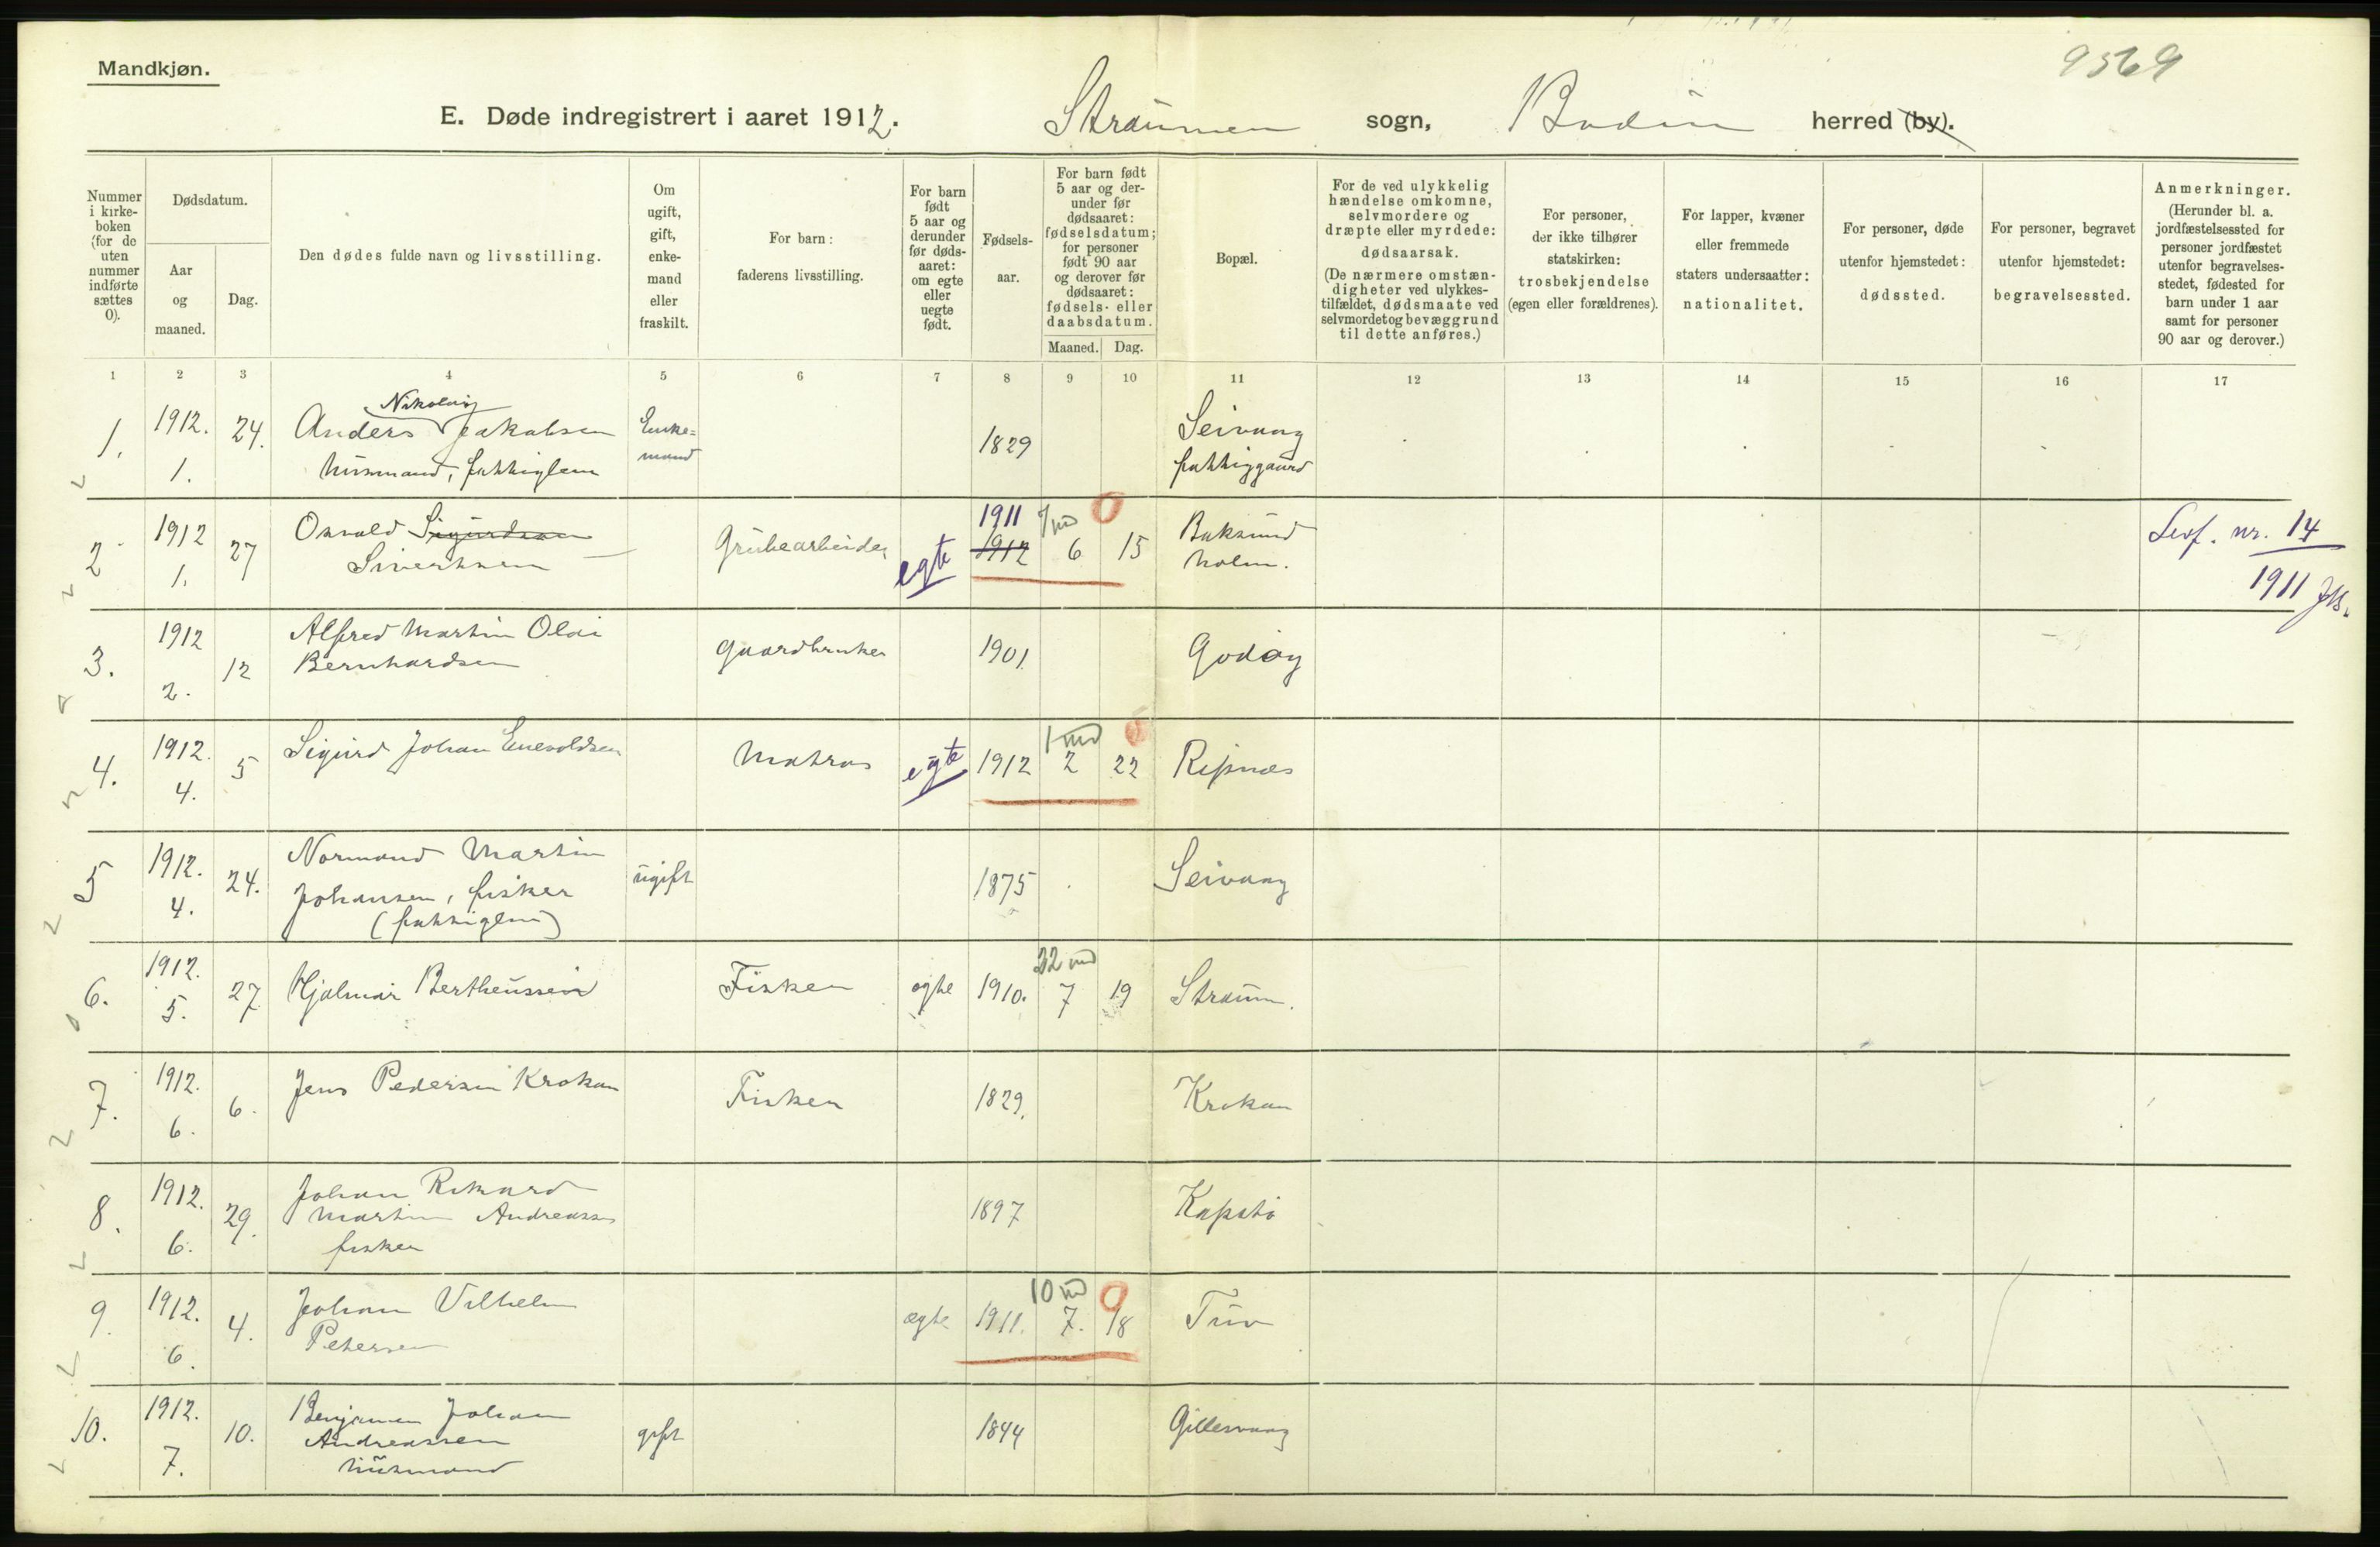 Mandkjøn.
9569
E. Døde indregistrert i aaret 1912. Straumen sogn, Bodin herred (by).
Nummer i kirke-boken (for de uten nummer indførte sættes 0).
Dødsdatum.
Aar og maaned.
Dag.
Den dødes fulde navn og livsstilling.
Om ugift, gift, enke-mand eller fraskilt.
For barn: faderens livsstilling.
For barn født 5 aar og derunder før døds-aaret: om egte eller uegte født.
Fødsels-aar.
For barn født 5 aar og der-under før dødsaaret: fødselsdatum; for personer født 90 aar og derover før dødsaaret: fødsels- eller daabsdatum.
Maaned. Dag.
Bopæl.
For de ved ulykkelig hændelse omkomne, selvmordere og dræpte eller myrdede: dødsaarsak. (De nærmere omstæn-digheter ved ulykkes-tilfældet, dødsmaate ved selvmordet og bevæggrund til dette anføres.)
For personer, der ikke tilhører statskirken: trosbekjendelse (egen eller forældrenes).
For lapper, kvæner eller fremmede staters undersaatter: nationalitet.
For personer, døde utenfor hjemstedet: dødssted.
For personer, begravet utenfor hjemstedet: begravelsessted.
Anmerkninger. (Herunder bl. a. jordfæstelsessted for personer jordfæstet utenfor begravelses-stedet, fødested for barn under 1 aar samt for personer 90 aar og derover.)
1 2 3 4 5 6 7 8 9 10 11 12 13 14 15 16 17
1. 1912. 1. 24. Anders Nikolai Jakobsen Husmand, fattiglem Enke=mand 1829 Seivaag fattiggaard
2 1912 1. 27 Osvald Sigurdsen Sivertsen Grubearbeider egte 1911 1912 7 md 6 15 0 Baksundholm. Levf. nr. 14 1911
3. 1912 2. 12 Alfred Martin Olai Bernhardsen Gaardbruker 1901. Godøy
4. 1912. 4. 5 Sigurd Johan Enevoldsen Matros egte 1912 1 md 2 22 Ripnes
5 1912. 4. 24. Normand Martin Johansen, fisker (fattiglem) ugift 1875 Seivaag
6. 1912. 5. 27 Hjalmar Bertheussen Fisker egte 1910. 22 md 7 19 Straum.
7. 1912. 6. 6. Jens Pedersen Krokan Fisker 1829. Krokan
8. 1912. 6. 29. Johan Rikard Martin Andreassen fisker 1897 Kapstø
9. 1912. 6. 4. Johan Vilhelm Petersen egte 1911. 10 md 7. 18 0 Tuv
10. 1912. 7. 10. Benjamen Johan Andreassen husmand gift 1844 Gillesvaag